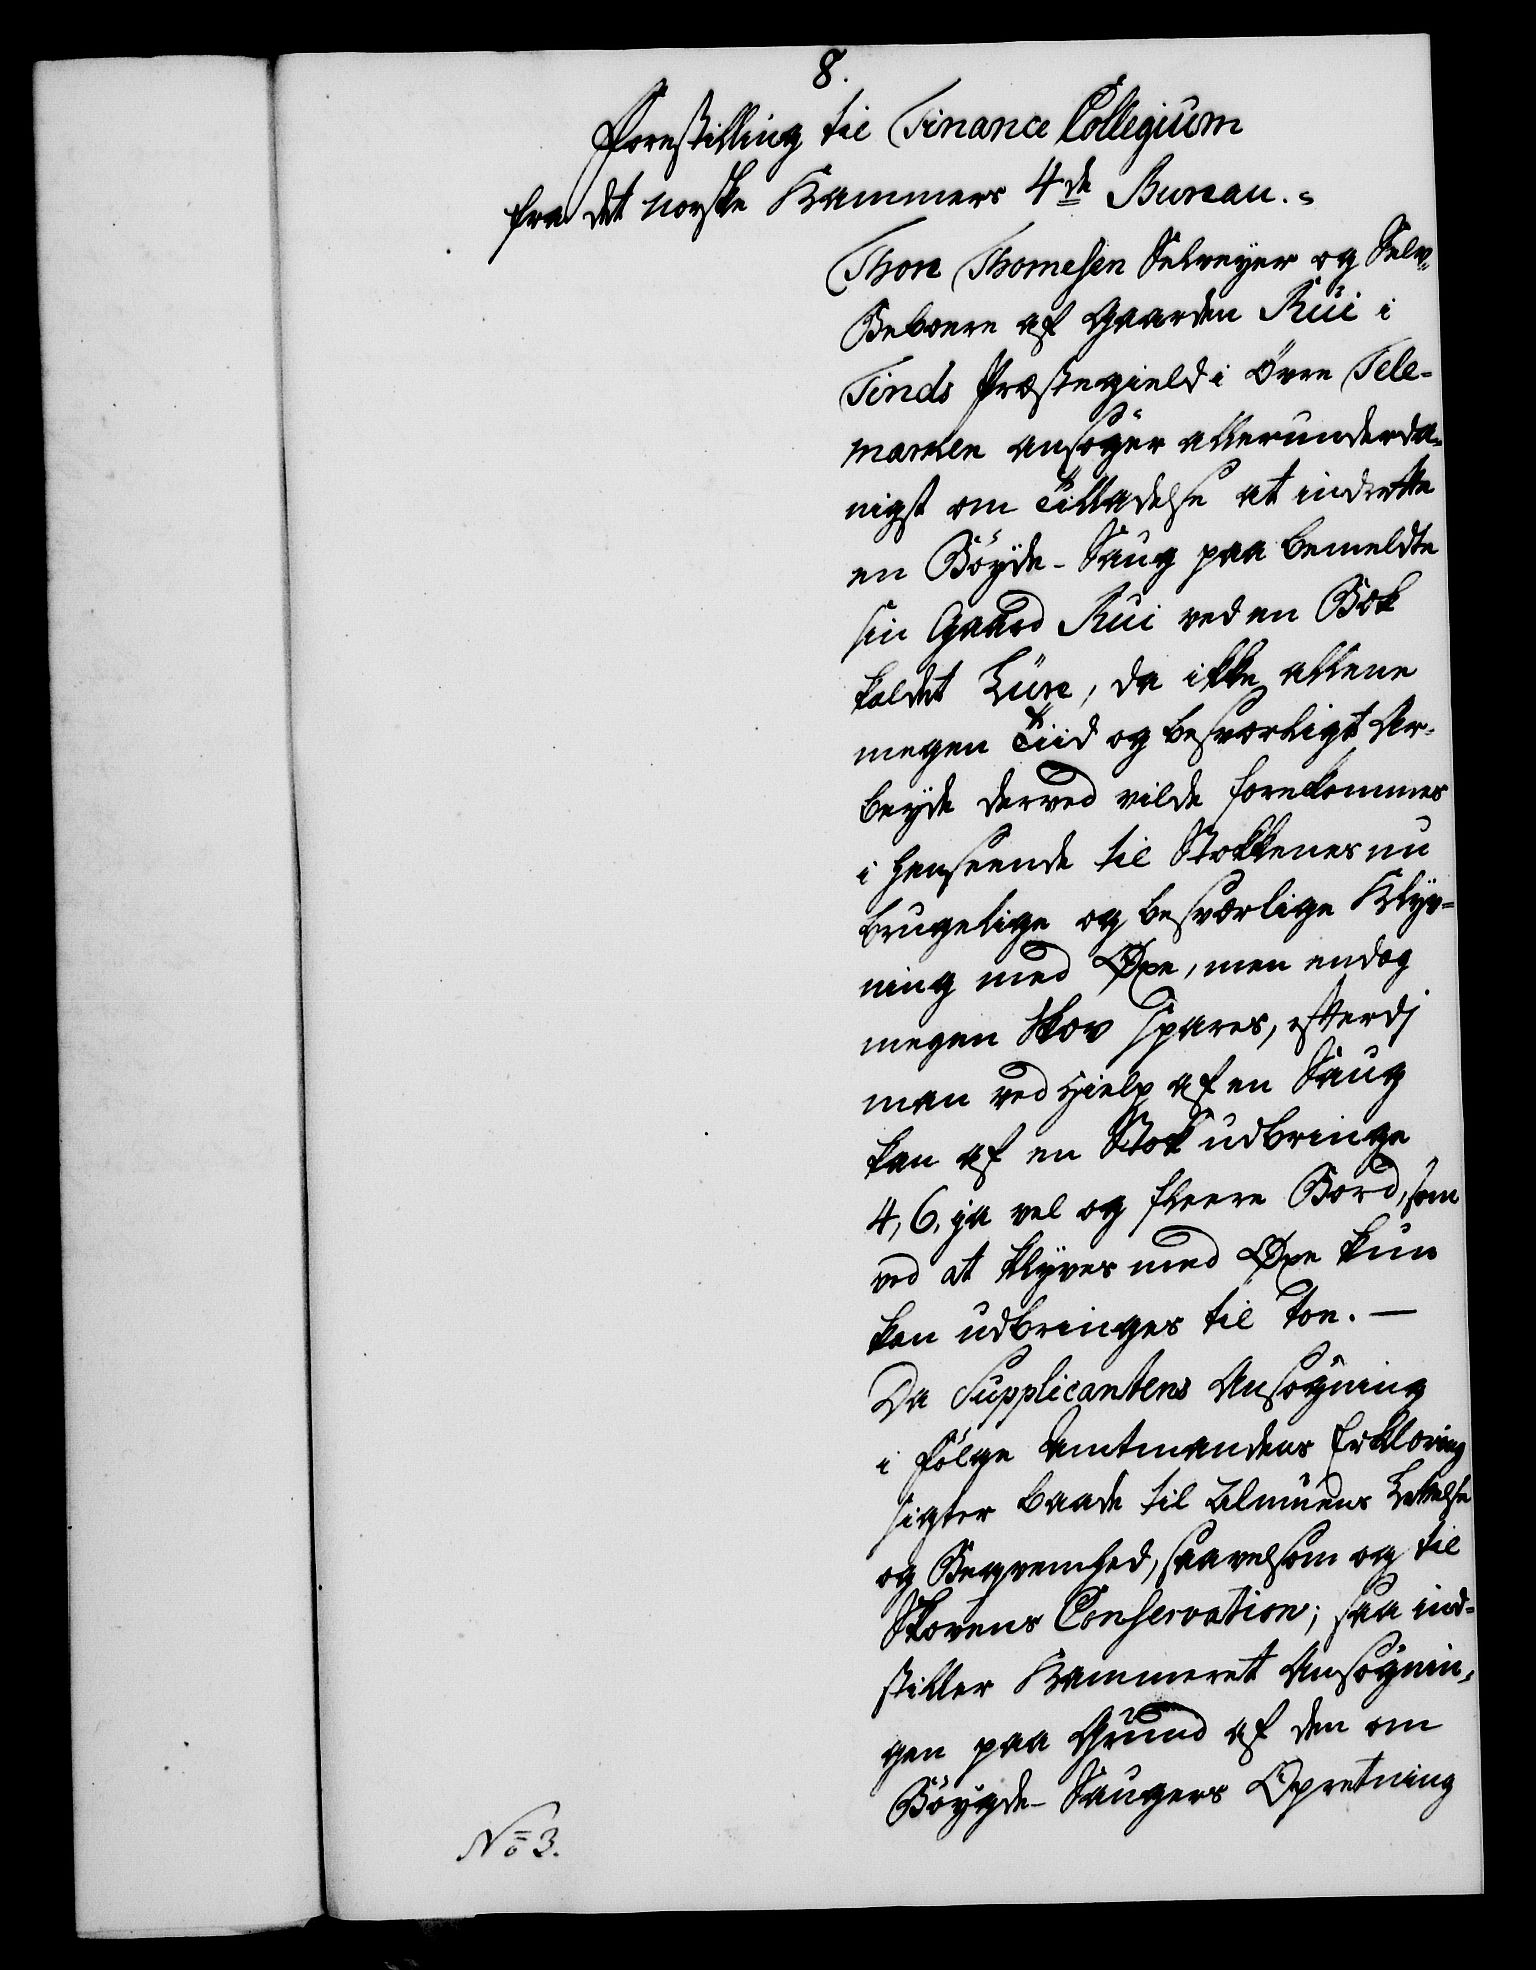 8.
Forestilling til Finance Collegium
fra det norske Kammers 4de Bureau.=
Thore Thomesen Selveyer og Selv-
Beboere af Gaarden Rui i
Tinds Præstegield i Övre Tele-
marken ansöger allerunderda-
nigst om Tilladelse at indrette
en Böyde-Saug paa bemeldte
sin Gaard Rui ved en Bæk
kaldet Lure, da ikke allene
megen Tiid og besværligt Ar-
beyde derved vilde forekommes
i Henseende til Stokkenes nu
brugelige og besværlige Klyv-
ning med Øxe, men endog
megen Skov spares, efterdj
man ved Hielp af en Saug
kan af en Stok udbringe
4, 6, ja vel og fleere Bord, som
ved at klyves med Øxe kun
kan udbringes til toe. —
Da Supplicantens Ansögning
i fölge Amtmandens Erklæring
sigter baade til Almuens Lettelse
og Beqvemhed, saavelsom og til
Skovens Conservation; saa ind-
stiller Kammeret Ansögnin-
gen paa Grund af den om
Böygde-Sauges Opretning
No 3.